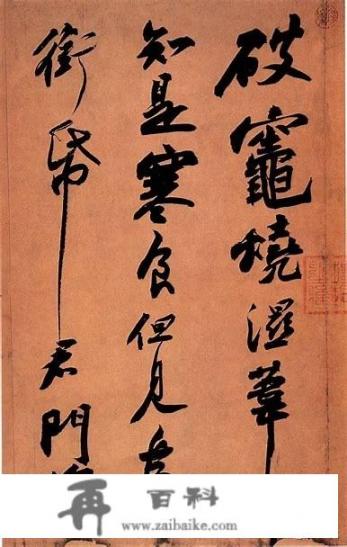 破竈燒濕葦
知是寒食但見
銜帋君門
再百科
www.zaibaike.com